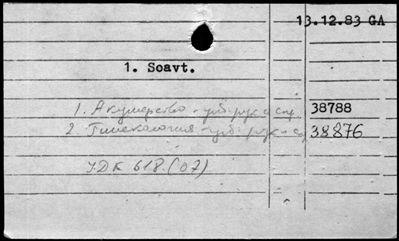 13.12.83 GA
1. Soavt.
1. Акушерство - уџб. рук. и сл. 38788
2. Гинекология - уџб. рук. и сл. 38876
УДК 618.(07)